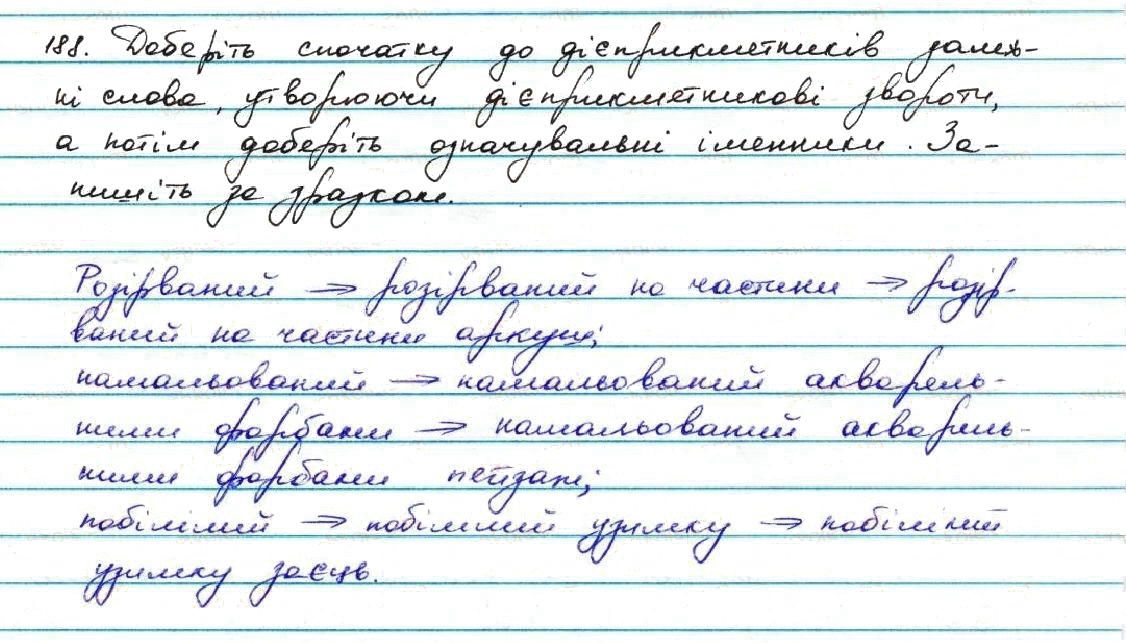 188. Доберіть спочатку до дієприкметників залеж-
ні слова, утворюючи дієприкметникові звороти,
а потім доберіть означувальні іменники. За-
пишіть за зразком.
Розірваний → розірваний на частини → розір-
ваний на частини аркуш;
намальований → намальований акварель-
ними фарбами → намальований акварель-
ними фарбами пейзаж;
побілілий → побілілий узимку → побілілий
узимку заєць.